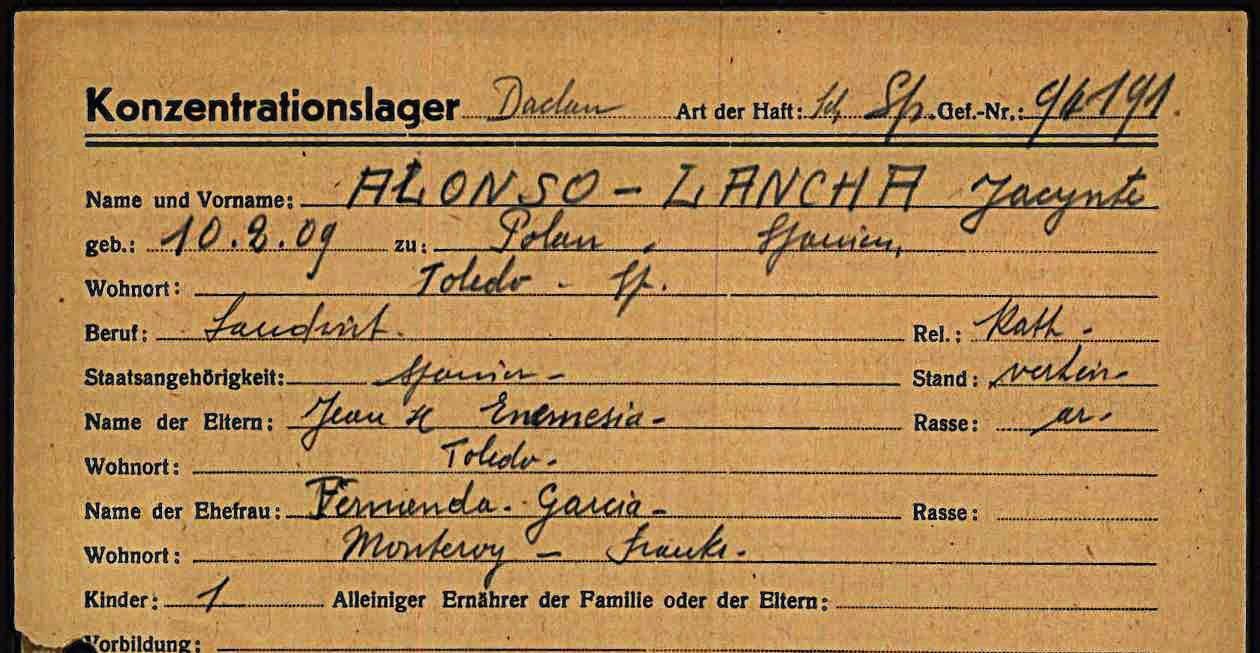 Konzentrationslager Dachau Art der Haft: Sch, Sp. Gef.-Nr.: 94191.
Name und Vorname: ALONSO - LANCHA Jacynte
geb.: 10.2.09 zu: Polan, Spanien,
Wohnort: Toledo - Sp.
Beruf: Landwirt. Rel.: Kath.
Staatsangehörigkeit: Spanien - Stand: verhei-
Name der Eltern: Jean & Enemesia - Rasse: ar.
Wohnort: Toledo.
Name der Ehefrau: Fernenda - Garcia - Rasse:
Wohnort: Monteroy - Frankr.
Kinder: 1 Alleiniger Ernährer der Familie oder der Eltern:
Vorbildung: